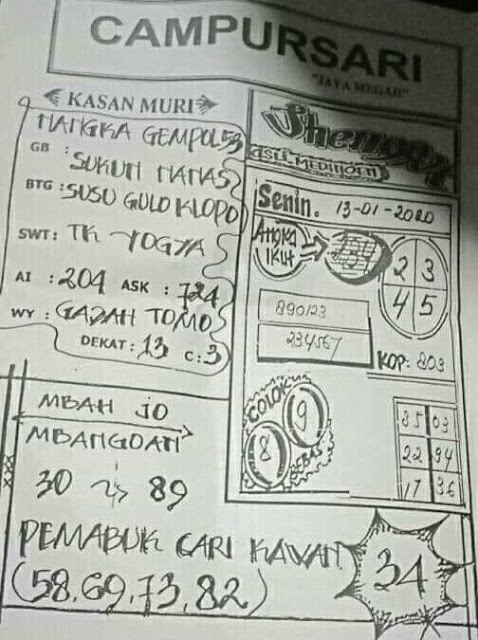 CAMPURSARI
"JAYA MEGAH"
KASAN MURI
NANGKA GEMPOL 59
GB : SUKUN NANAS
BTG : SUSU GULO KLOPO
SWT : TK YOGYA
AI : 204 ASK : 724
WY : GAJAH TOMO
DEKAT : 13 C : 3
ASLI MEDITIOEN
Senin. 13-01-2020
ANGKA IKUT
2 3
4 5
890123
234567
KOP: 803
COLOK BEBAS
8 9
35 03
22 94
17 36
MBAH JO
MBANGOAN
30 89
PEMABUK CARI KAWAN
(58.69.73.82)
34